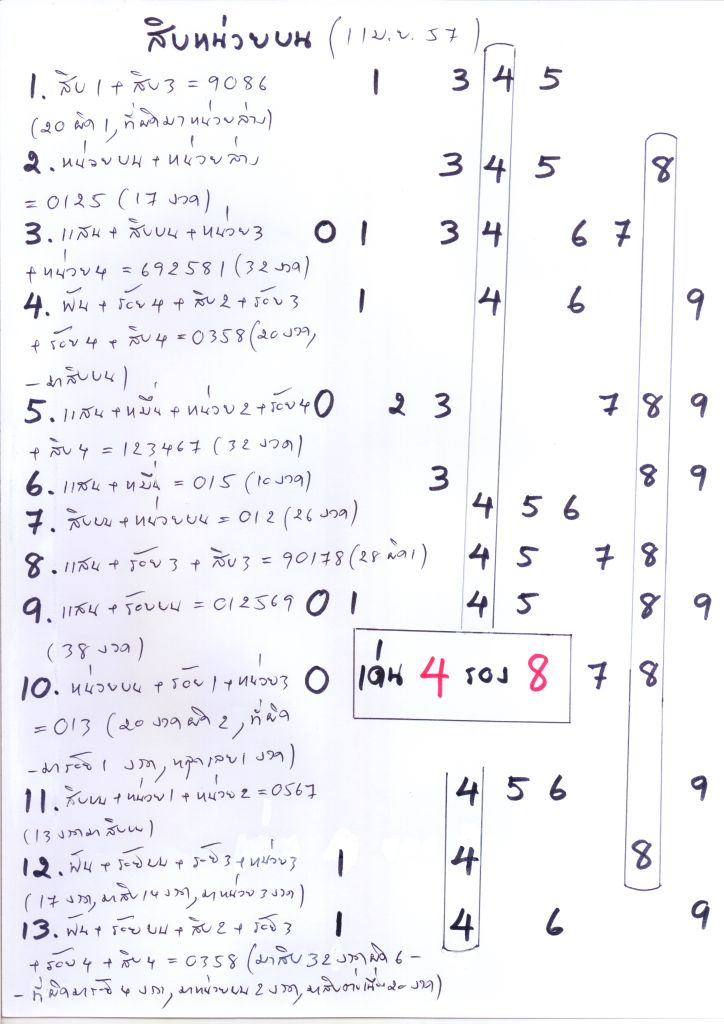 สิบหน่วยบน (11 ม.ย. 57)
1. สิบ 1 + สิบ 3 = 9086 1 3 4 5
(20 ผิด 1, ที่ผิดมาหน่วยล่าง)
2. หน่วยบน + หน่วยล่าง 3 4 5 8
= 0125 (17 งวด)
3. แสน + สิบบน + หน่วย 3 0 1 3 4 6 7
+ หน่วย 4 = 692581 (32 งวด)
4. พัน + ร้อย 4 + สิบ 2 + ร้อย 3 1 4 6 9
+ ร้อย 4 + สิบ 4 = 0358 (20 งวด,
- มาสิบบน)
5. แสน + หมื่น + หน่วย 2 + ร้อย 4 0 2 3 7 8 9
+ สิบ 4 = 123467 (32 งวด)
6. แสน + หมื่น = 015 (10 งวด) 3 8 9
7. สิบบน + หน่วยบน = 012 (26 งวด) 4 5 6
8. แสน + ร้อย 3 + สิบ 3 = 90178 (28 ผิด 1) 4 5 7 8
9. แสน + ร้อยบน = 012569 0 1 4 5 8 9
(38 งวด)
10. หน่วยบน + ร้อย 1 + หน่วย 3 0 เด่น 4 รอง 8 7 8
= 013 (20 งวด ผิด 2, ที่ผิด
- มาร้อย 1 งวด, หลุดเลย 1 งวด)
11. สิบบน + หน่วย 1 + หน่วย 2 = 0567 4 5 6 9
(13 งวดมาสิบบน)
12. พัน + ร้อยบน + ร้อย 3 + หน่วย 3 1 4 8
(17 งวด, มาสิบ 14 งวด, มาหน่วย 3 งวด)
13. พัน + ร้อยบน + สิบ 2 + ร้อย 3 1 4 6 9
+ ร้อย 4 + สิบ 4 = 0358 (มาสิบ 32 งวดผิด 6 -
- ที่ผิดมาร้อย 4 งวด, มาหน่วยบน 2 งวด, มาสิบต่อเนื่อง 20 งวด)